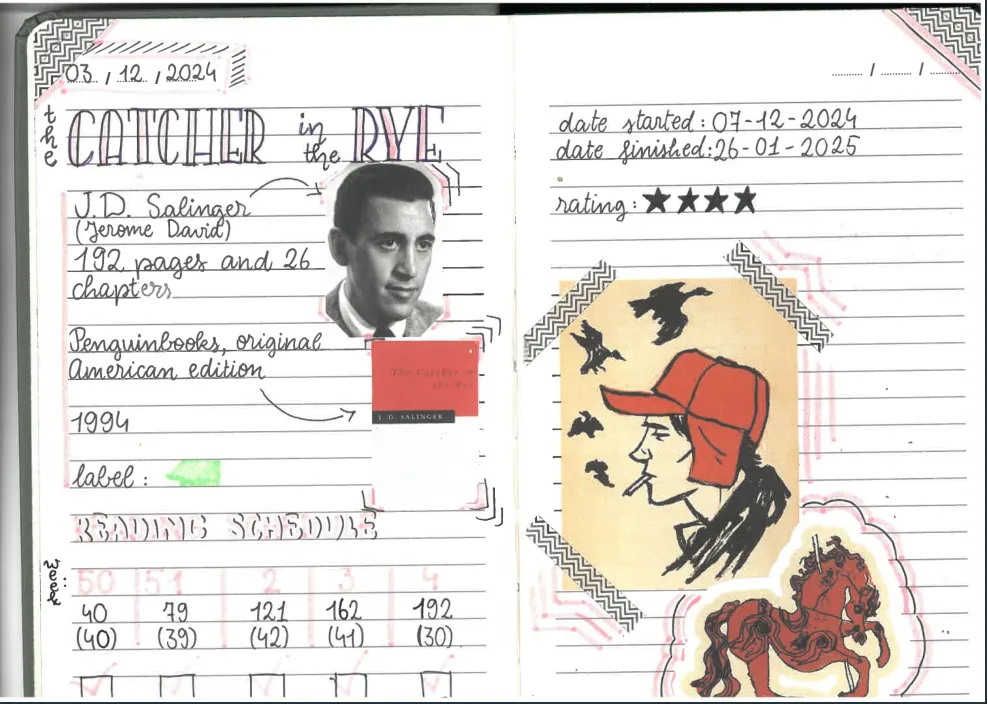 03 / 12 / 2024
the CATCHER in the RYE
J.D. Salinger
(Jerome David)
192 pages and 26
chapters
Penguinbooks, original
American edition
The Catcher in
the Rye
J. D. SALINGER
1994
label :
READING SCHEDULE
week:
50 51 2 3 4
40 79 121 162 192
(40) (39) (42) (41) (30)
/ /
date started : 07-12-2024
date finished:26-01-2025
rating : ★★★★